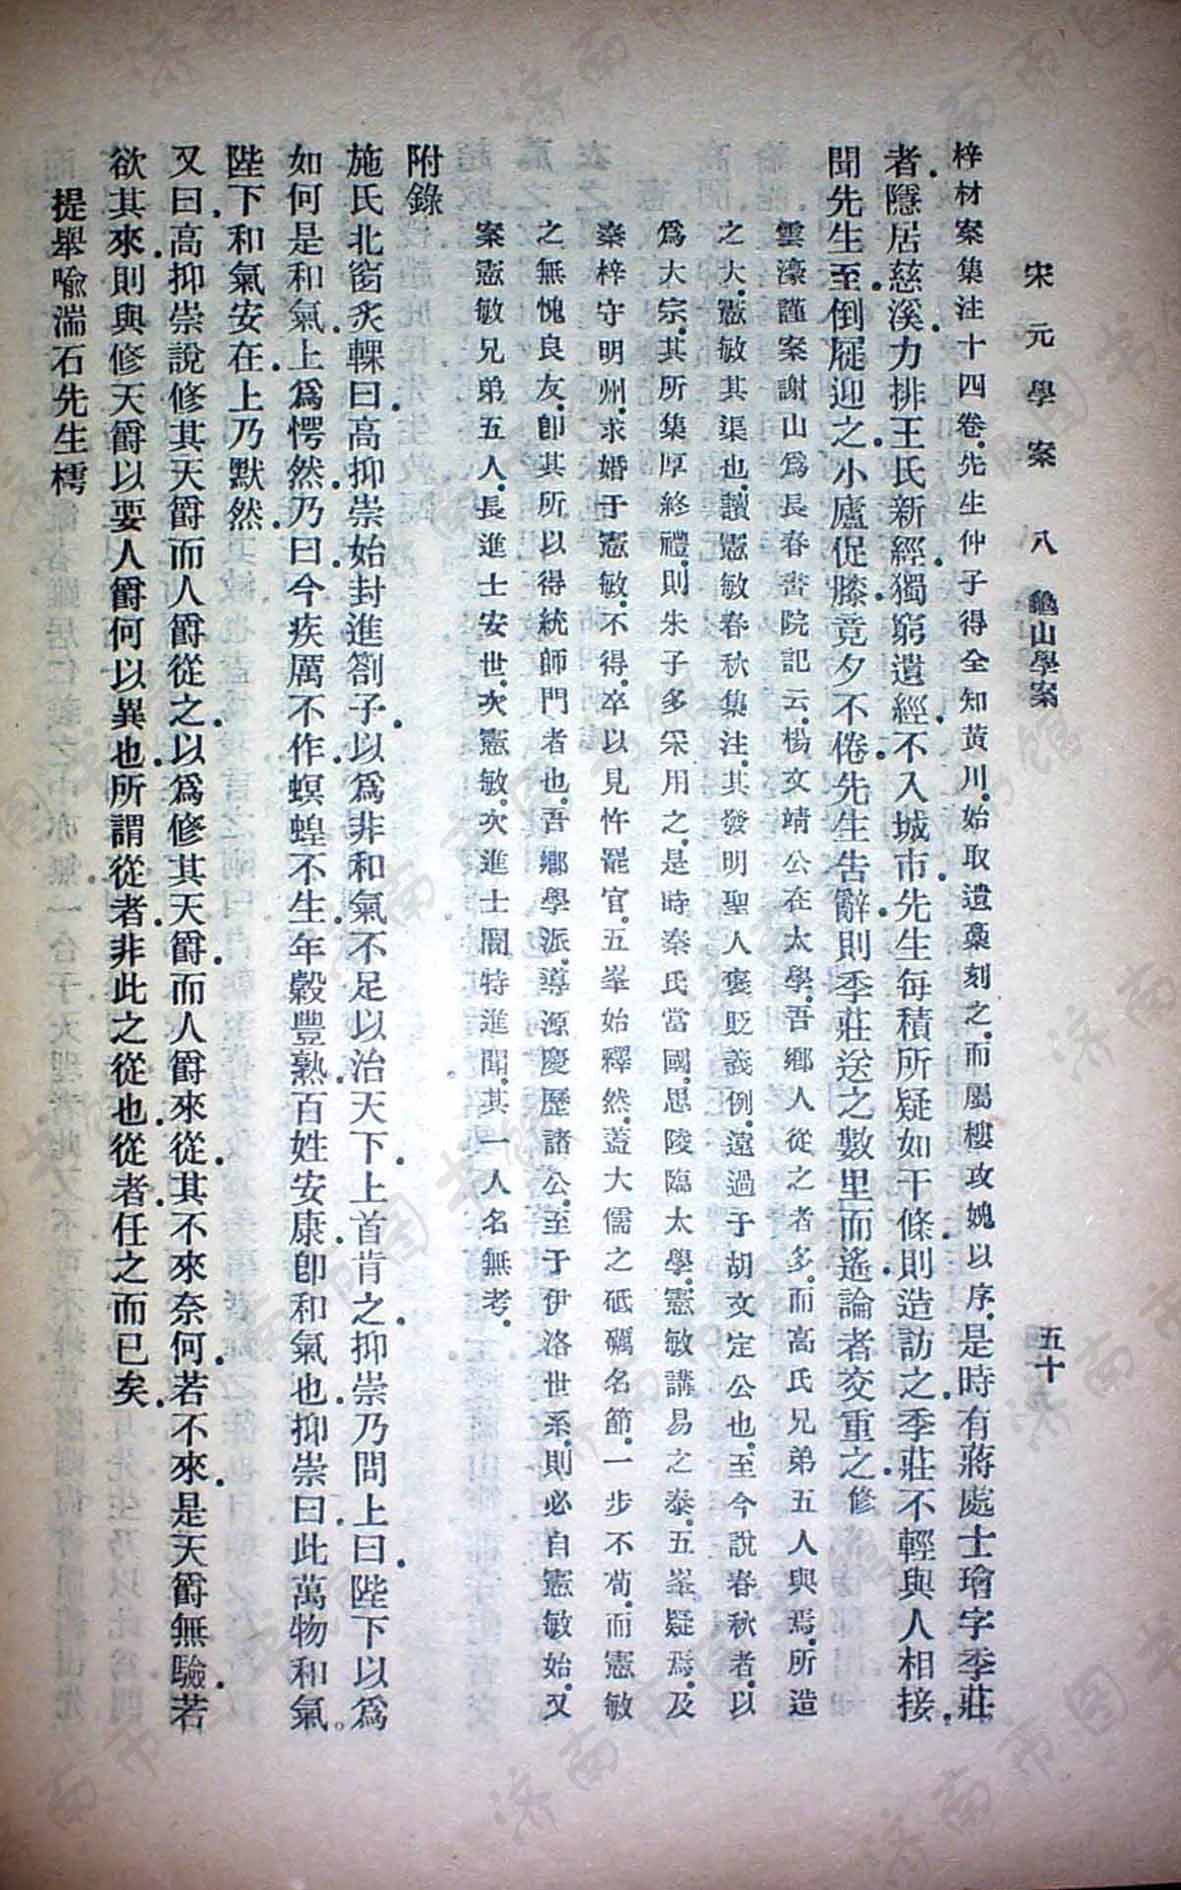 宋元學案 八 龜山學案 五十
梓材案集注十四卷.先生仲子得全知黃川.始取遺藁刻之.而屬樓攻媿以序.是時有蔣處士璯字季莊.
者.隱居慈溪.力排王氏新經.獨窮遺經.不入城市.先生每積所疑如干條.則造訪之.季莊不輕與人相接.
聞先生至.倒屣迎之.小廬促膝.竟夕不倦.先生吿辭.則季莊送之數里而遙.論者交重之.修
雲濠謹案.謝山爲長春書院記云.楊文靖公在太學.吾鄉人從之者多.而高氏兄弟五人與焉.所造
之大.憲敏其渠也.讀憲敏春秋集注.其發明聖人褒貶義例.遠過于胡文定公也.至今說春秋者.以
爲大宗.其所集厚終禮.則朱子多采用之.是時秦氏當國.思陵臨太學.憲敏講易之泰.五峯疑焉.及
秦梓守明州.求婚于憲敏.不得.卒以見忤罷官.五峯始釋然.蓋大儒之砥礪名節.一步不苟.而憲敏
之無愧良友.卽其所以得統師門者也.吾鄉學派.導源慶歷諸公.至于伊洛世系.則必自憲敏始.又
案憲敏兄弟五人.長進士安世.次憲敏.次進士閌.特進聞.其一人名無考.
附錄
施氏北窗炙輠曰.高抑崇始封進劄子.以爲非和氣不足以治天下.上首肯之.抑崇乃問上曰.陛下以爲
如何是和氣.上爲愕然.乃曰.今疾厲不作.螟蝗不生.年穀豐熟.百姓安康.卽和氣也.抑崇曰.此萬物和氣。
陛下和氣安在.上乃默然.
又曰.高抑崇說修其天爵而人爵從之.以爲修其天爵.而人爵來從.其不來奈何.若不來.是天爵無驗.若
欲其來.則與修天爵以要人爵何以異也.所謂從者.非此之從也.從者.任之而已矣.
提舉喩湍石先生樗